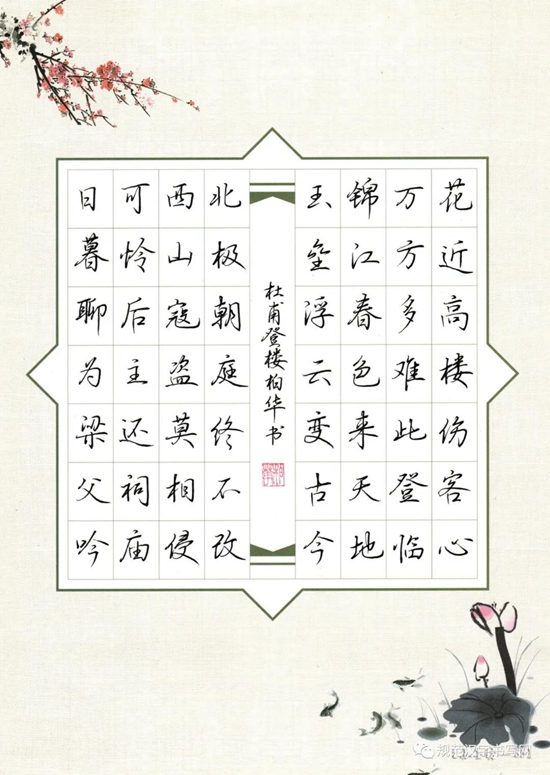 花近高楼伤客心
万方多难此登临
锦江春色来天地
玉垒浮云变古今
杜甫登楼柏华书
北极朝庭终不改
西山寇盗莫相侵
可怜后主还祠庙
日暮聊为梁父吟
规范汉字书写网